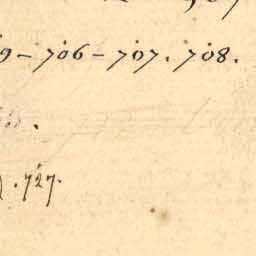 9 - 706 - 707. 708.
. 727.